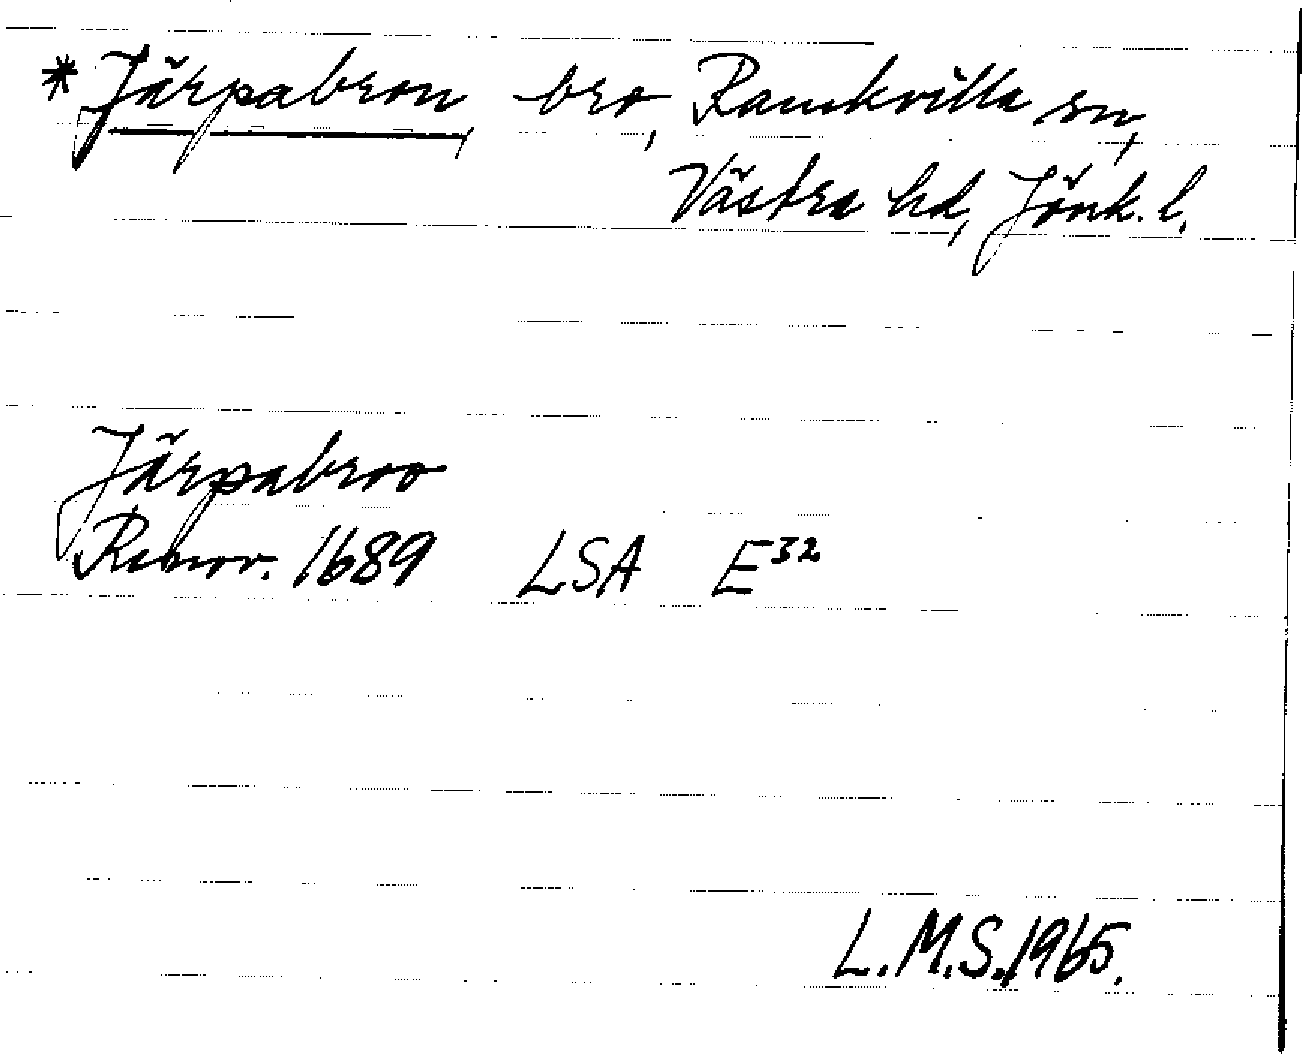 * Järpabron, bro, Ramkvilla sn,
Västra hd, Jönk. l.
Järpabroo
Renov. 1689 LSA E32
L.M.S. 1965.